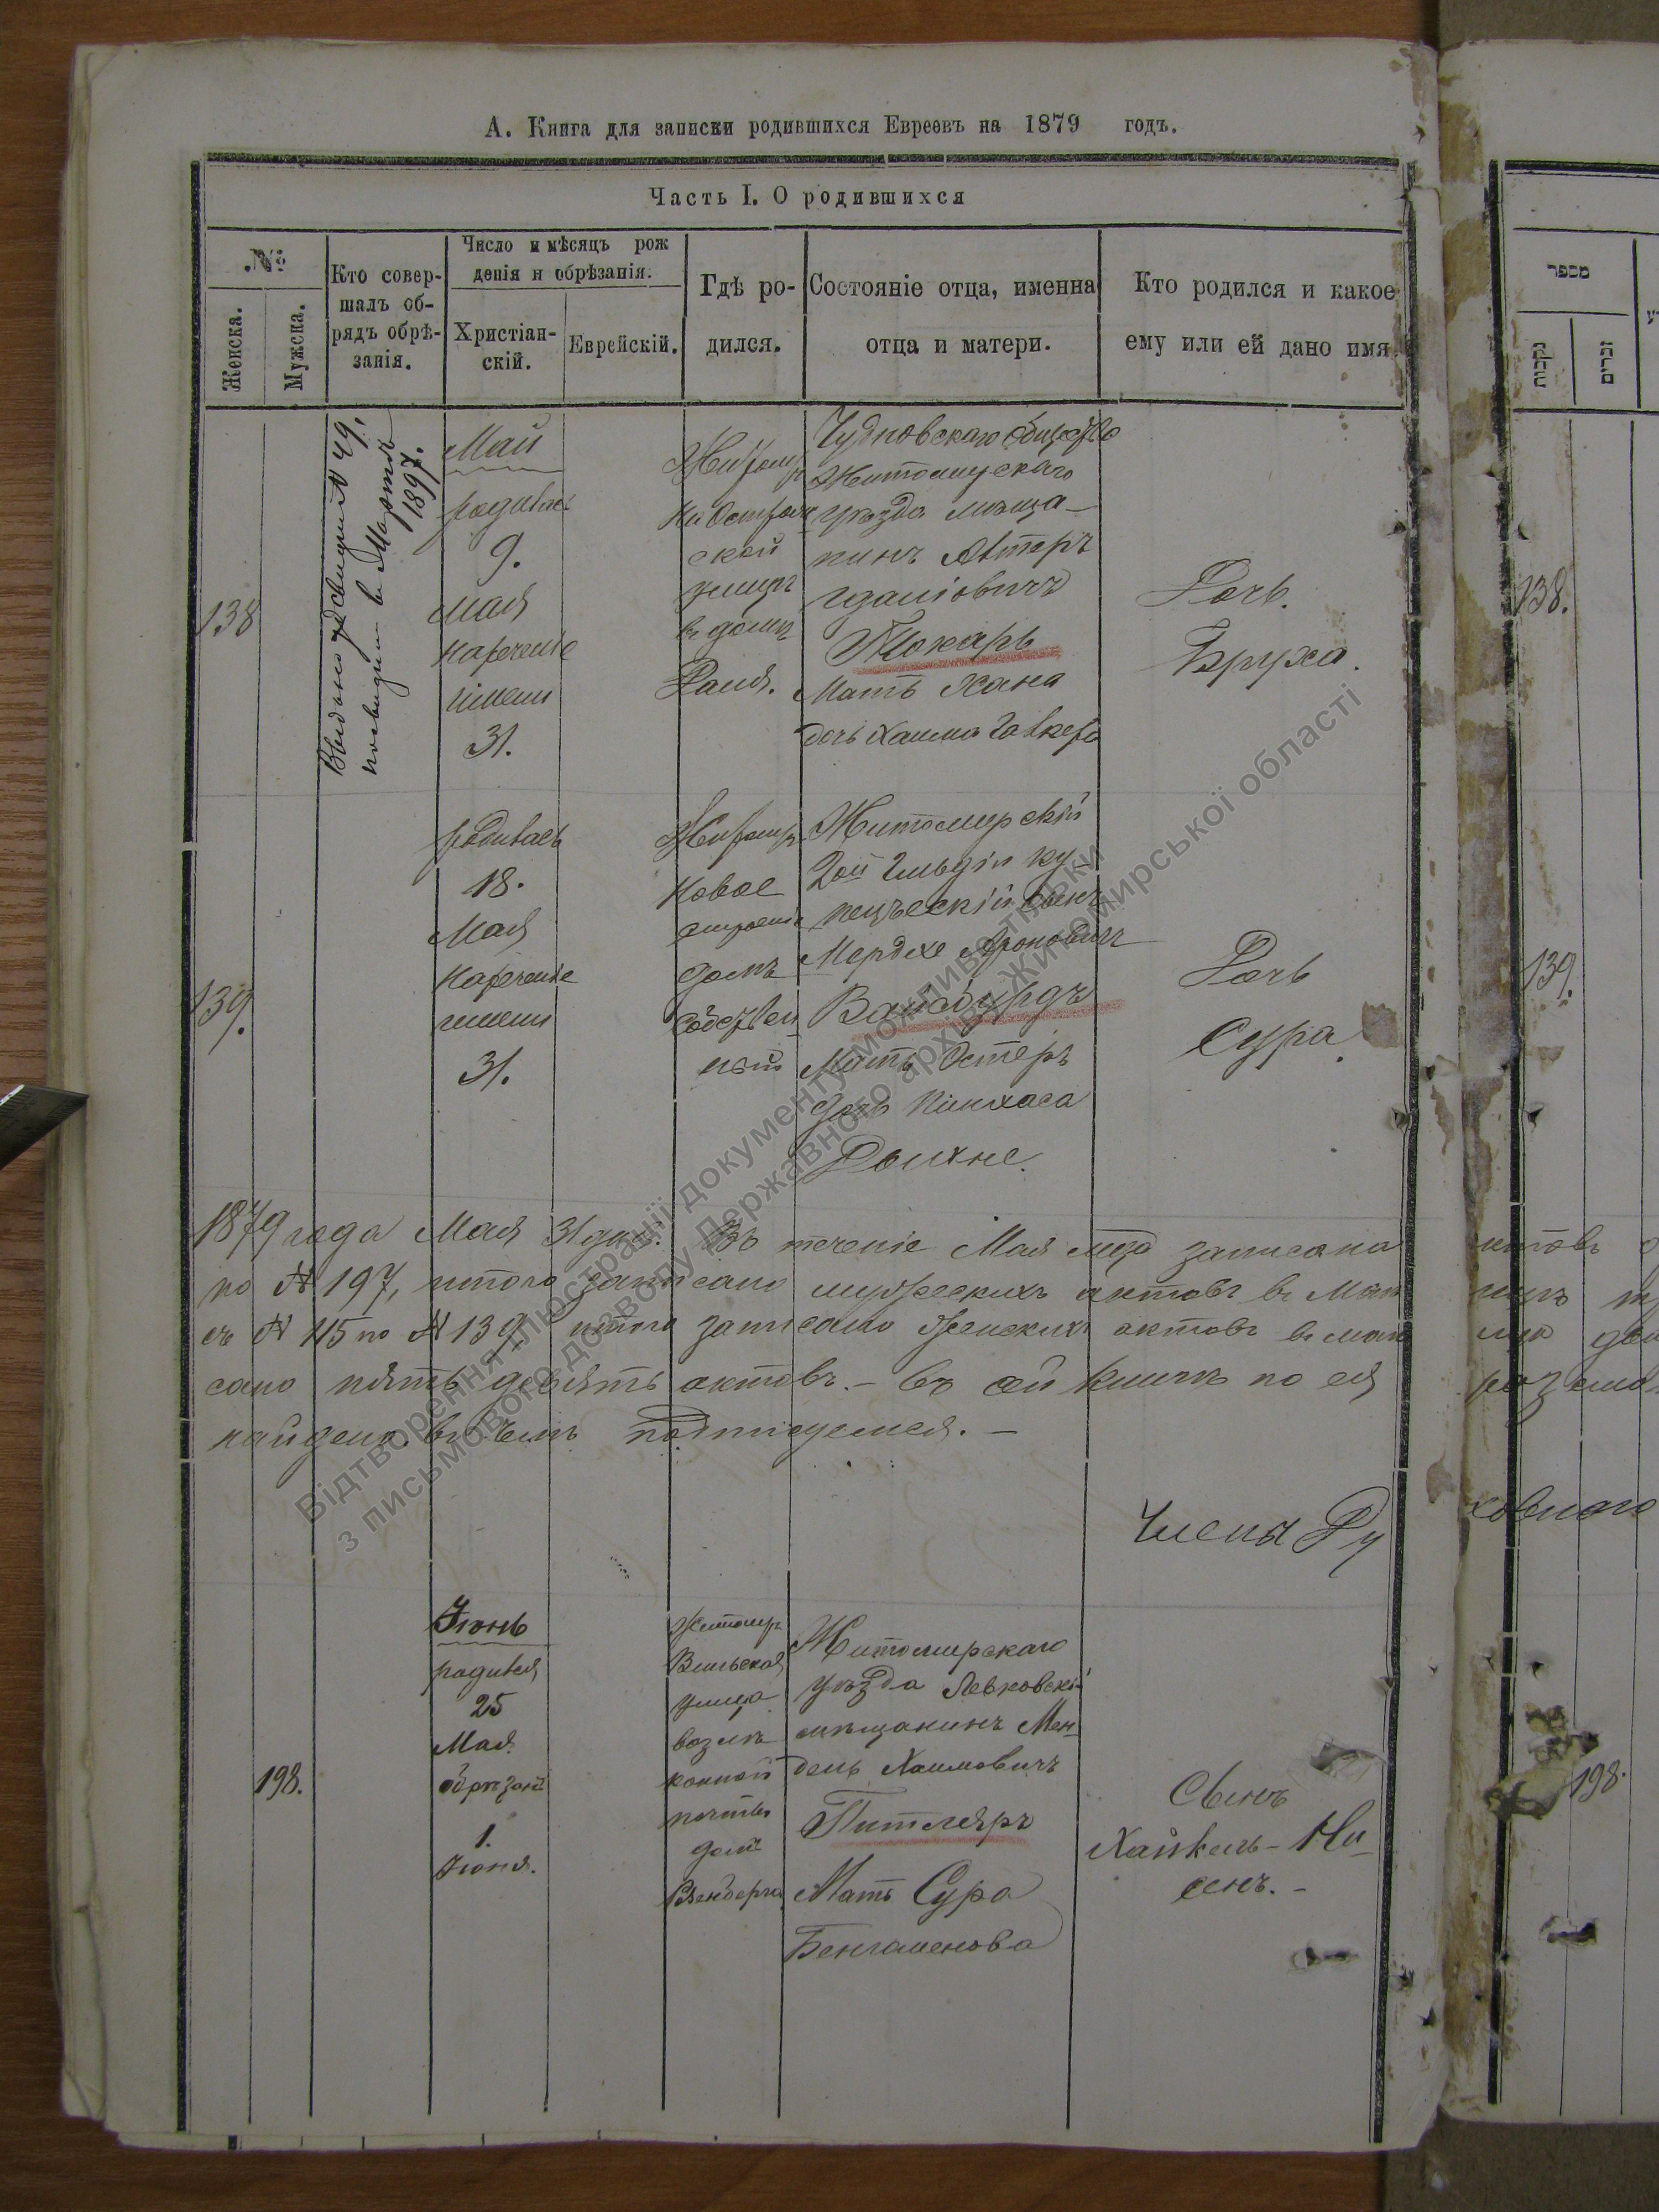 А. Книга для записки родившихся Евреевъ на 1879 годъ.
Часть I. О родившихся
№
Женска.
Мужска.
Кто совер-
шалъ об-
рядъ обрѣ-
занія.
Число и мѣсяцъ рож
денія и обрѣзанія.
Христіан-
скій.
Еврейскій.
Гдѣ ро-
дился.
Состояніе отца, именна
отца и матери.
Кто родился и какое
ему или ей дано имя
מספר
נקבות
זכרים
138
№ 49,
в Марта
1897.
Май
родилась
9.
Мая
нареченіе
имени
31.
Житомир
ской
улицѣ
в домѣ
Чудновскаго общество
Житомирскаго
уѣзда мѣща-
нинъ
Токарь
Мать Хана
дочь Хаима
Дочь.
Бруха.
138.
139.
родилась
18.
Мая
нареченіе
имени
31.
Житомир
Новое
строеніе
домъ
собствен
ный
Житомирскій
2ой Гильдіи ку-
печескій сынъ
Мердхе Ароновичъ
Вайсбурдъ
Мать Эстеръ
дочь Пинхаса
Дочь
Сура.
139.
1879 года Мая 31 дня. Въ теченіе Мая м-ца записано
по № 197, итого записано мужескихъ актовъ в Мая
съ № 115 по № 139, итого записано Женскихъ актовъ в мая
сано пять девять актовъ. – въ сей книгѣ по ея
найдено. в чемъ подписуемся. –
Члены Ду
ховнаго
Іюнь
родился
25
Мая.
обрѣзанъ
1.
Іюня.
198.
Житомир
Вильская
улица
возлѣ
конной
почты
домъ
Житомирскаго
уѣзда Левковскій
мѣщанинъ Мен-
дель Хаимовичъ
Питлеръ
Мать Сура
Бенгаменова
Сынъ
Хайкель-Ни-
сенъ. –
198.
Відтворення ілюстрації документу можливе тільки
з письмового дозволу Державного архіву Житомирської області